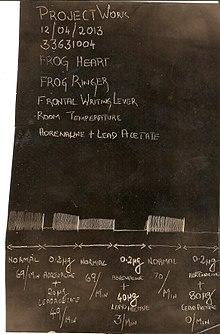 PROJECT WORK
12/04/2013
33631004
FROG HEART
FROG RINGER
FRONTAL WRITING LEVER
ROOM TEMPERATURE
ADRENALINE + LEAD ACETATE
NORMAL 0.2µg NORMAL 0.2µg NORMAL 0.2µg
69/MIN ADRENALINE 69/MIN ADRENALINE 70/MIN ADRENALINE
+ + +
20µg 40µg 80µg
LEAD ACETATE LEAD ACETATE LEAD ACETATE
49/MIN 3/MIN 0/MIN